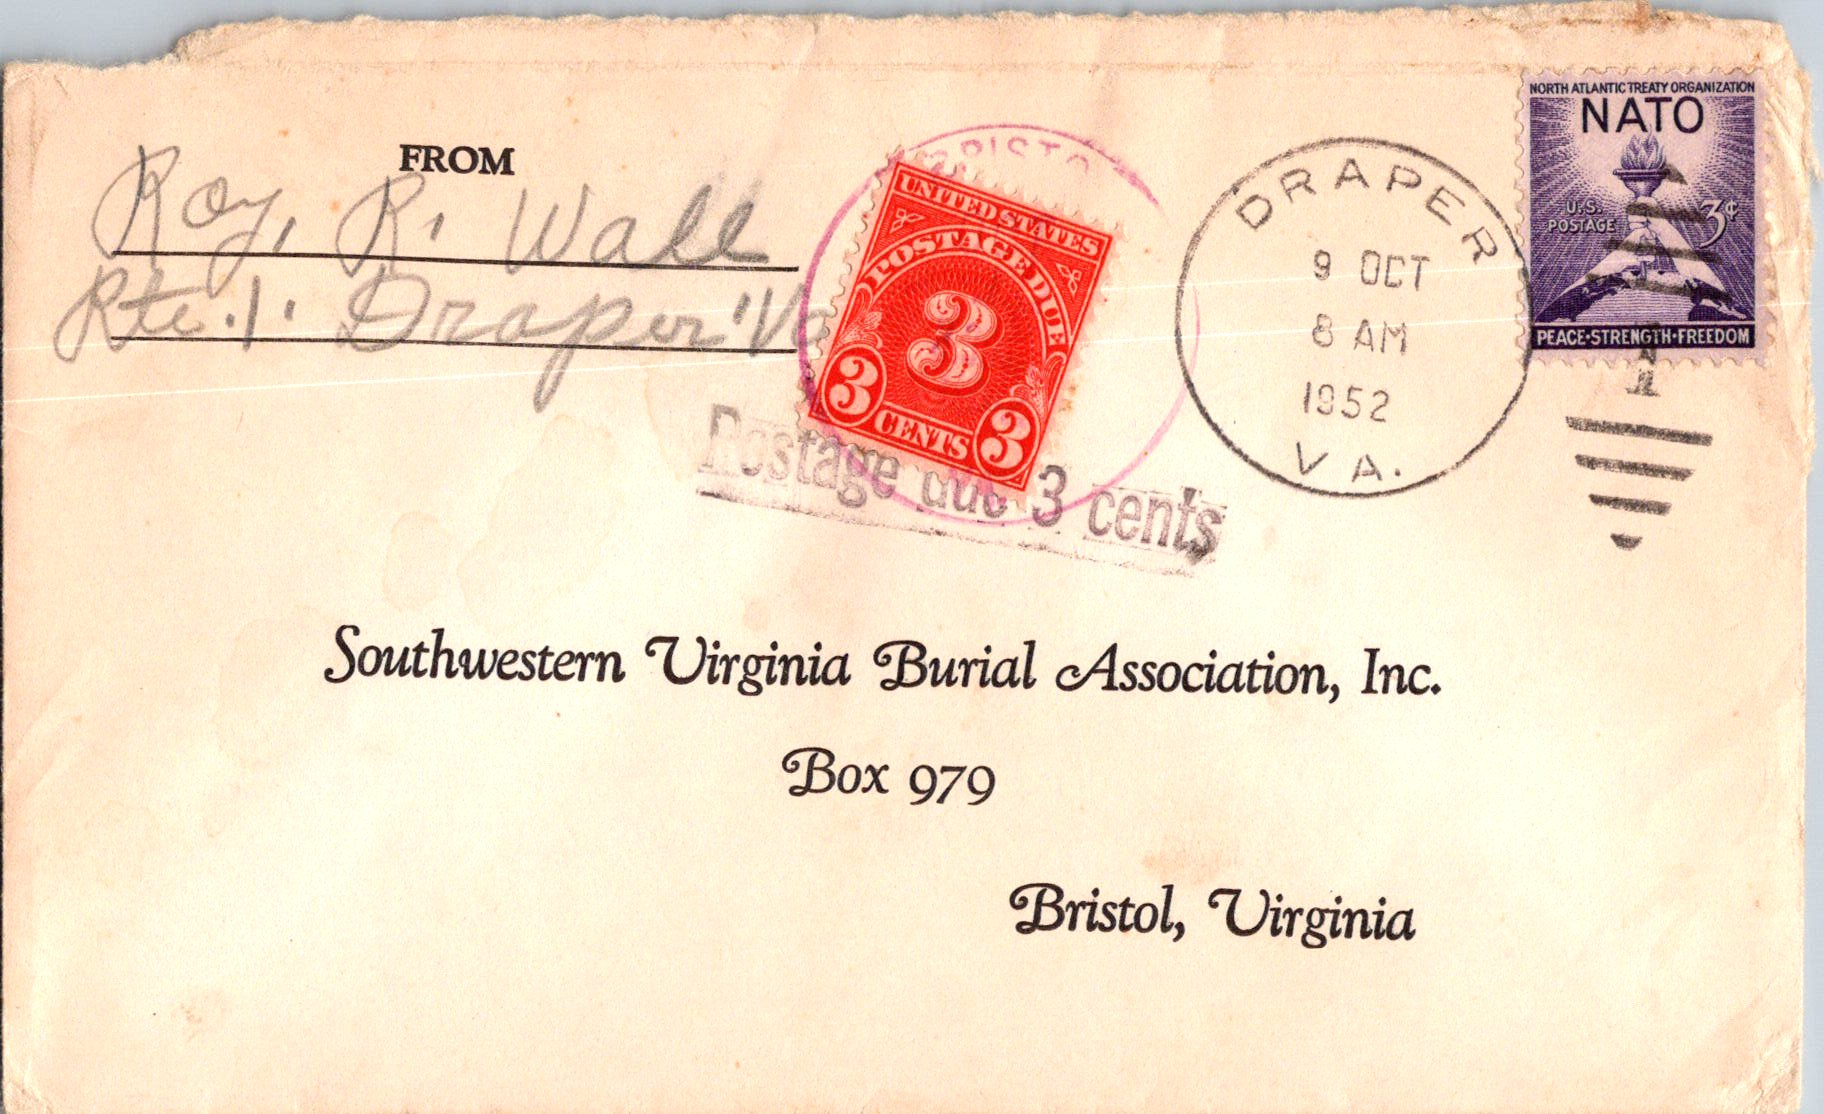 FROM
Roy, R. Wall
Rte. 1. Draper Va
BRISTO
UNITED STATES
POSTAGE DUE
3
3 CENTS 3
Postage due 3 cents
DRAPER
9 OCT
8 AM
1952
VA.
NORTH ATLANTIC TREATY ORGANIZATION
NATO
U.S. POSTAGE 3¢
PEACE·STRENGTH·FREEDOM
Southwestern Virginia Burial Association, Inc.
Box 979
Bristol, Virginia